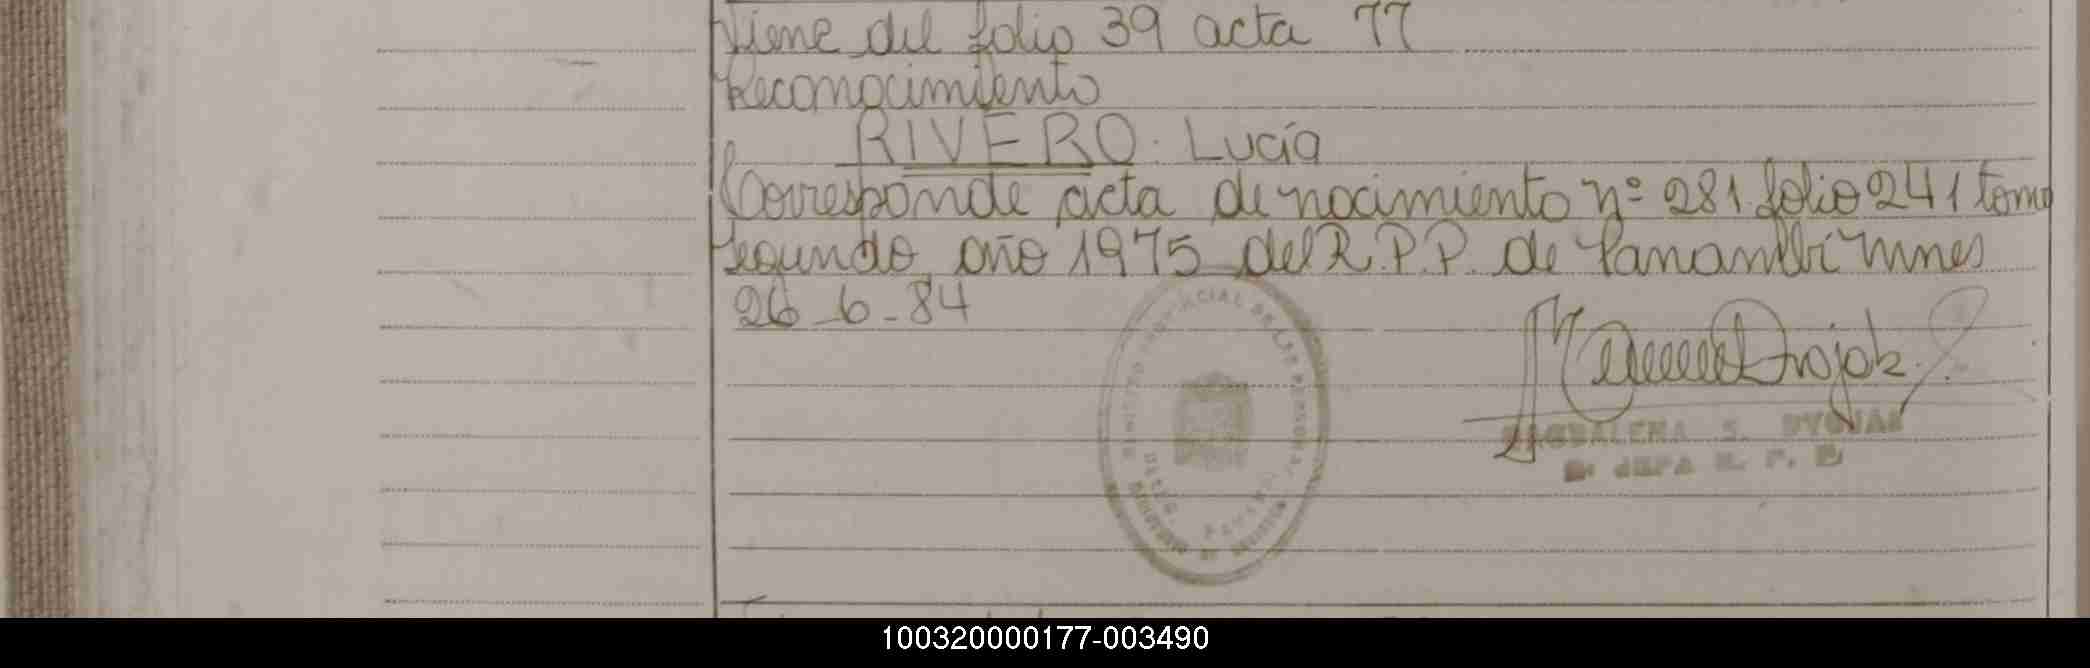 Viene del folio 39 acta 77
Reconocimiento
RIVERO. Lucía
Corresponde acta de nacimiento nº 281 folio 241 tomo
segundo, año 1975 del R.P.P. de Panambí Mnes
26-6-84
MAGDALENA S.
JEFA R. P.
100320000177-003490